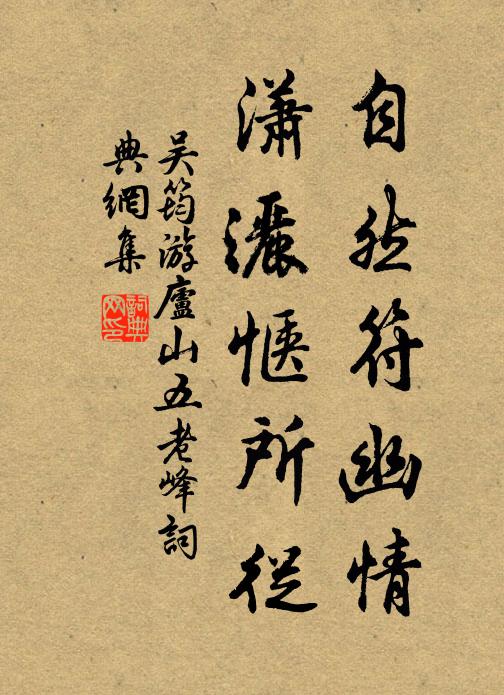 自然符幽情
瀟灑愜所從
吴筠游廬山五老峰詞
典網集
詞典
网印